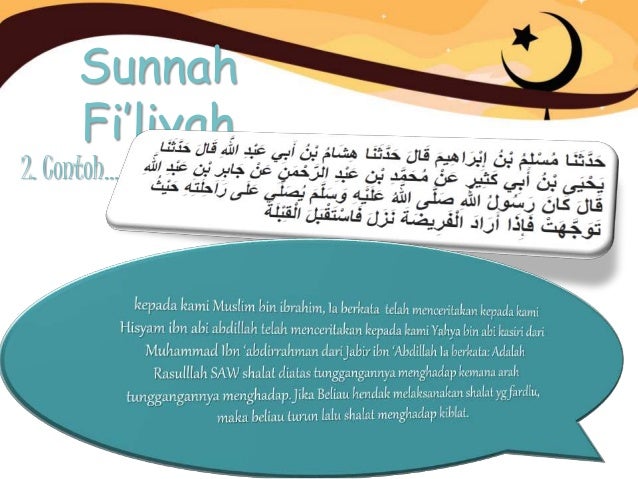 Sunnah
Fi'liyah
2. Contoh...
حَدَّثَنَا مُسْلِمُ بْنُ إِبْرَاهِيمَ قَالَ حَدَّثَنَا هِشَامُ بْنُ أَبِي عَبْدِ اللَّهِ قَالَ حَدَّثَنَا
يَحْيَى بْنُ أَبِي كَثِيرٍ عَنْ مُحَمَّدِ بْنِ عَبْدِ الرَّحْمَنِ عَنْ جَابِرِ بْنِ عَبْدِ اللَّهِ
قَالَ كَانَ رَسُولُ اللَّهِ صَلَّى اللَّهُ عَلَيْهِ وَسَلَّمَ يُصَلِّي عَلَى رَاحِلَتِهِ حَيْثُ
تَوَجَّهَتْ فَإِذَا أَرَادَ الْفَرِيضَةَ نَزَلَ فَاسْتَقْبَلَ الْقِبْلَةَ
kepada kami Muslim bin ibrahim, Ia berkata telah menceritakan kepada kami
Hisyam ibn abi abdillah telah menceritakan kepada kami Yahya bin abi kasiri dari
Muhammad Ibn 'abdirrahman dari Jabir ibn 'Abdillah Ia berkata: Adalah
Rasulllah SAW shalat diatas tunggangannya menghadap kemana arah
tunggangannya menghadap. Jika Beliau hendak melaksanakan shalat yg fardlu,
maka beliau turun lalu shalat menghadap kiblat.